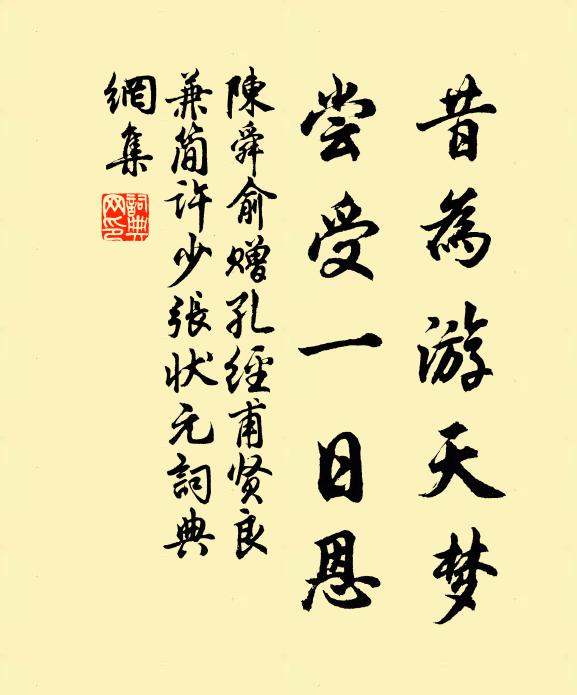 昔為游天梦
尝受一日恩
陳舜俞赠孔經甫贤良
兼简许少張状元詞典
網集
詞典網印